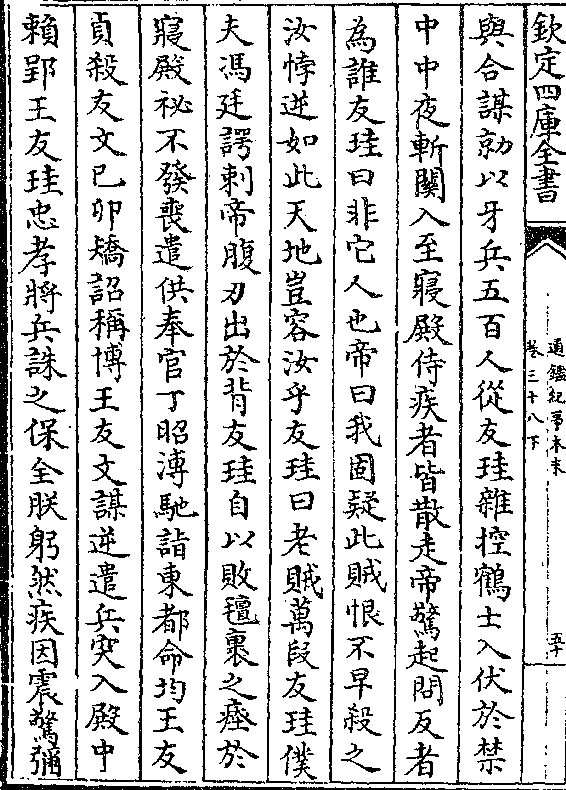 欽定四庫全書
通鑑紀事本末
卷三十八下
五十
與合謀勍以牙兵五百人從友珪雜控鶴士入伏於禁
中中夜斬關入至寢殿侍疾者皆散走帝驚起問反者
為誰友珪曰非它人也帝曰我固疑此賊恨不早殺之
汝悖逆如此天地豈容汝乎友珪曰老賊萬段友珪僕
夫馮廷諤刺帝腹刃出於背友珪自以敗氊裹之瘞於
寢殿祕不發喪遣供奉官丁昭溥馳詣東都命均王友
貞殺友文己卯矯詔稱博王友文謀逆遣兵突入殿中
賴郢王友珪忠孝將兵誅之保全朕躬然疾因震驚彌